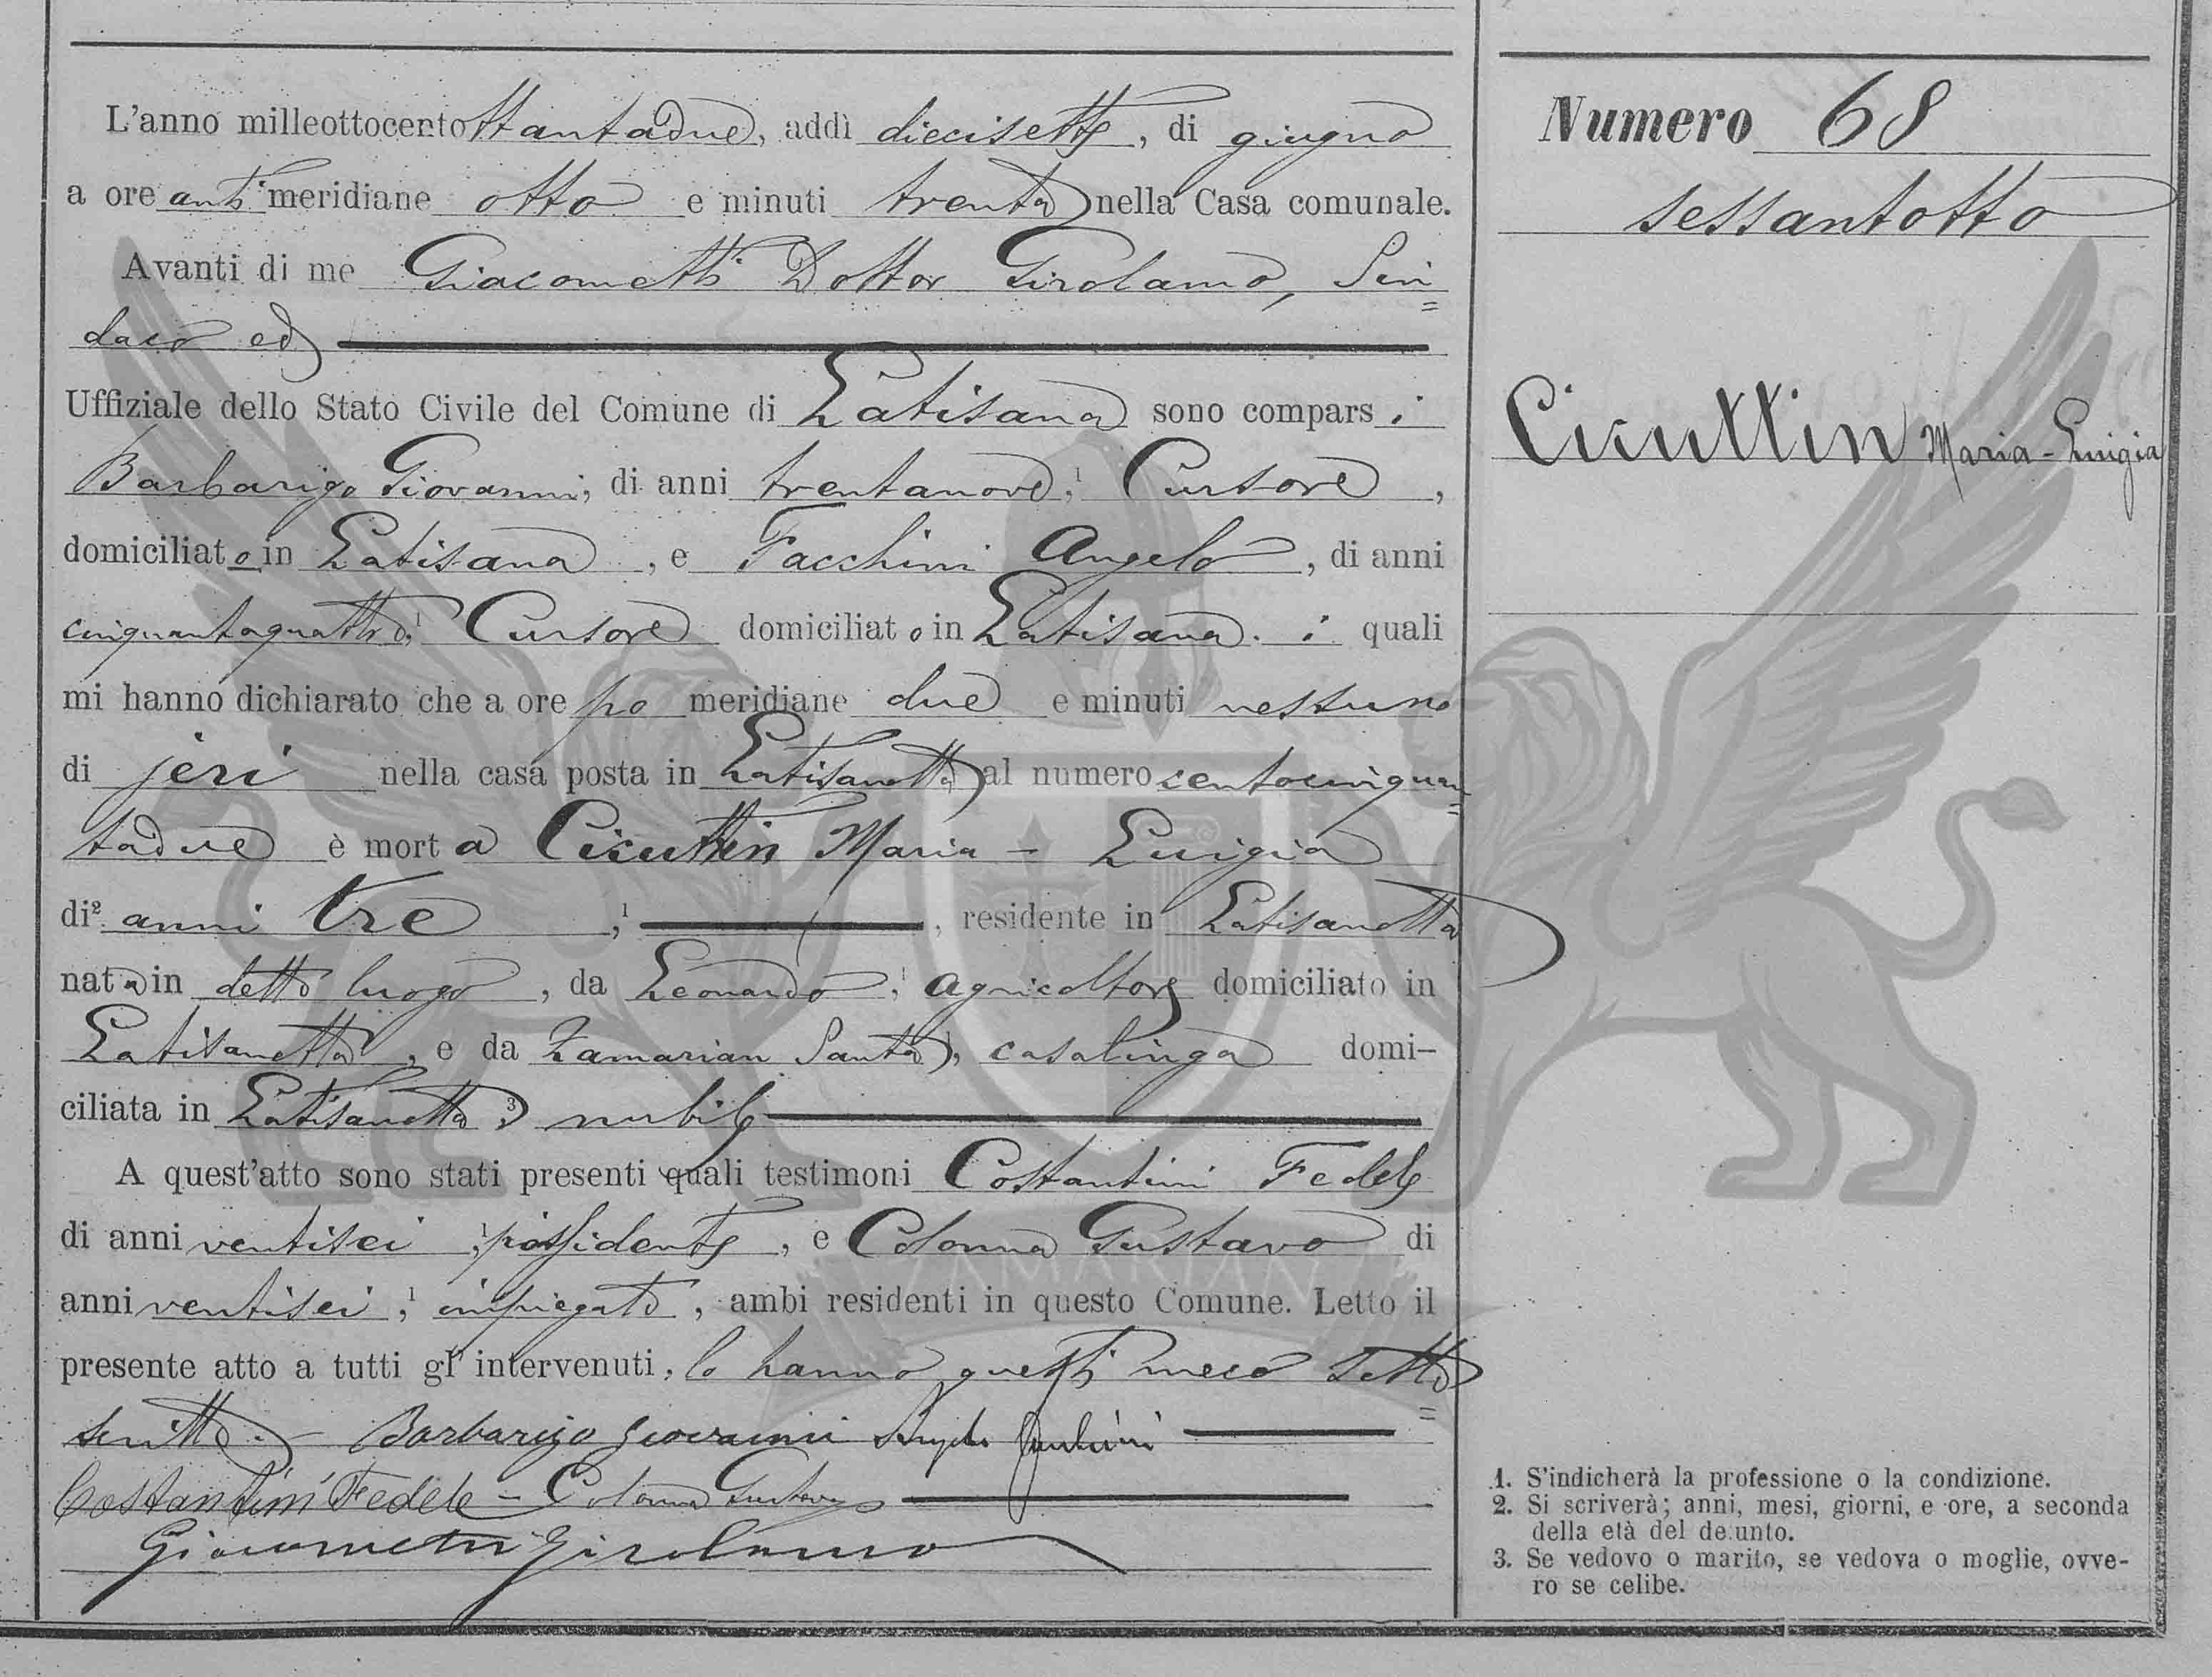 L'anno milleottocentottantadue, addì diecisette, di giugno
a ore anti meridiane otto e minuti trenta nella Casa comunale.
Avanti di me Giacometti Dottor Girolamo, Sin=
daco ed
Uffiziale dello Stato Civile del Comune di Latisana sono compars i
Barbarigo Giovanni, di anni trentanove,¹ Cursore,
domiciliato in Latisana, e Facchini Angelo, di anni
cinquantaquattro,¹ Cursore domiciliato in Latisana. i quali
mi hanno dichiarato che a ore po meridiane due e minuti nessuno
di jeri nella casa posta in Latisanotta al numero centocinquan=
tadue è morta Cicuttin Maria - Luigia
di² anni tre,¹ residente in Latisanotta
nata in detto luogo, da Leonardo,¹ agricoltore domiciliato in
Latisanotta, e da Zamarian Santa,¹ casalinga domi-
ciliata in Latisanotta ³) nubile
A quest'atto sono stati presenti quali testimoni Costantini Fedele
di anni ventisei,¹ possidente, e Colonna Gustavo di
anni ventisei,¹ impiegato, ambi residenti in questo Comune. Letto il
presente atto a tutti gl'intervenuti, lo hanno questi meco sotto=
scritto. - Barbarigo Giovanni Angelo Facchini
Costantini Fedele - Colonna Gustavo
Giacometti Girolamo
Numero 68
sessantotto
Cicuttin Maria-Luigia
1. S'indicherà la professione o la condizione.
2. Si scriverà; anni, mesi, giorni, e ore, a seconda
della età del defunto.
3. Se vedovo o marito, se vedova o moglie, ovve-
ro se celibe.
ZAMARIAN